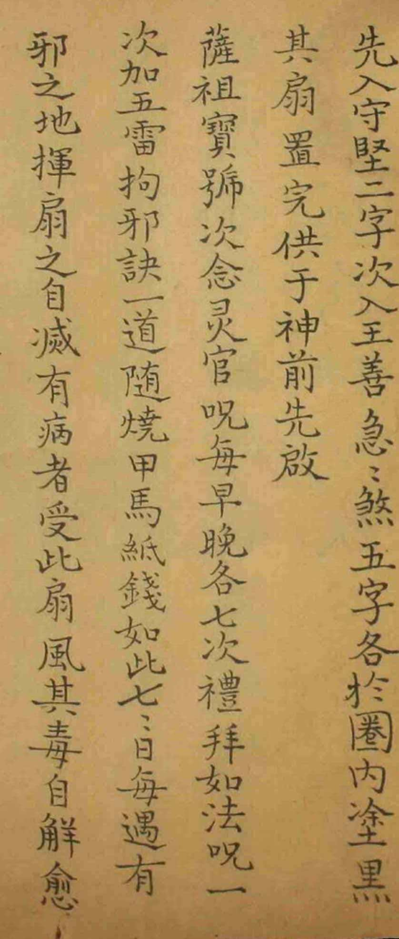 先入守堅二字次入王善急〻煞五字各於圈内塗黒
其扇置完供于神前先啟
薩祖寳號次念灵官呪每早晚各七次禮拜如法呪一
次加五雷拘邪訣一道随燒甲馬紙錢如此七〻日每遇有
邪之地揮扇之自滅有病者受此扇風其毒自解愈